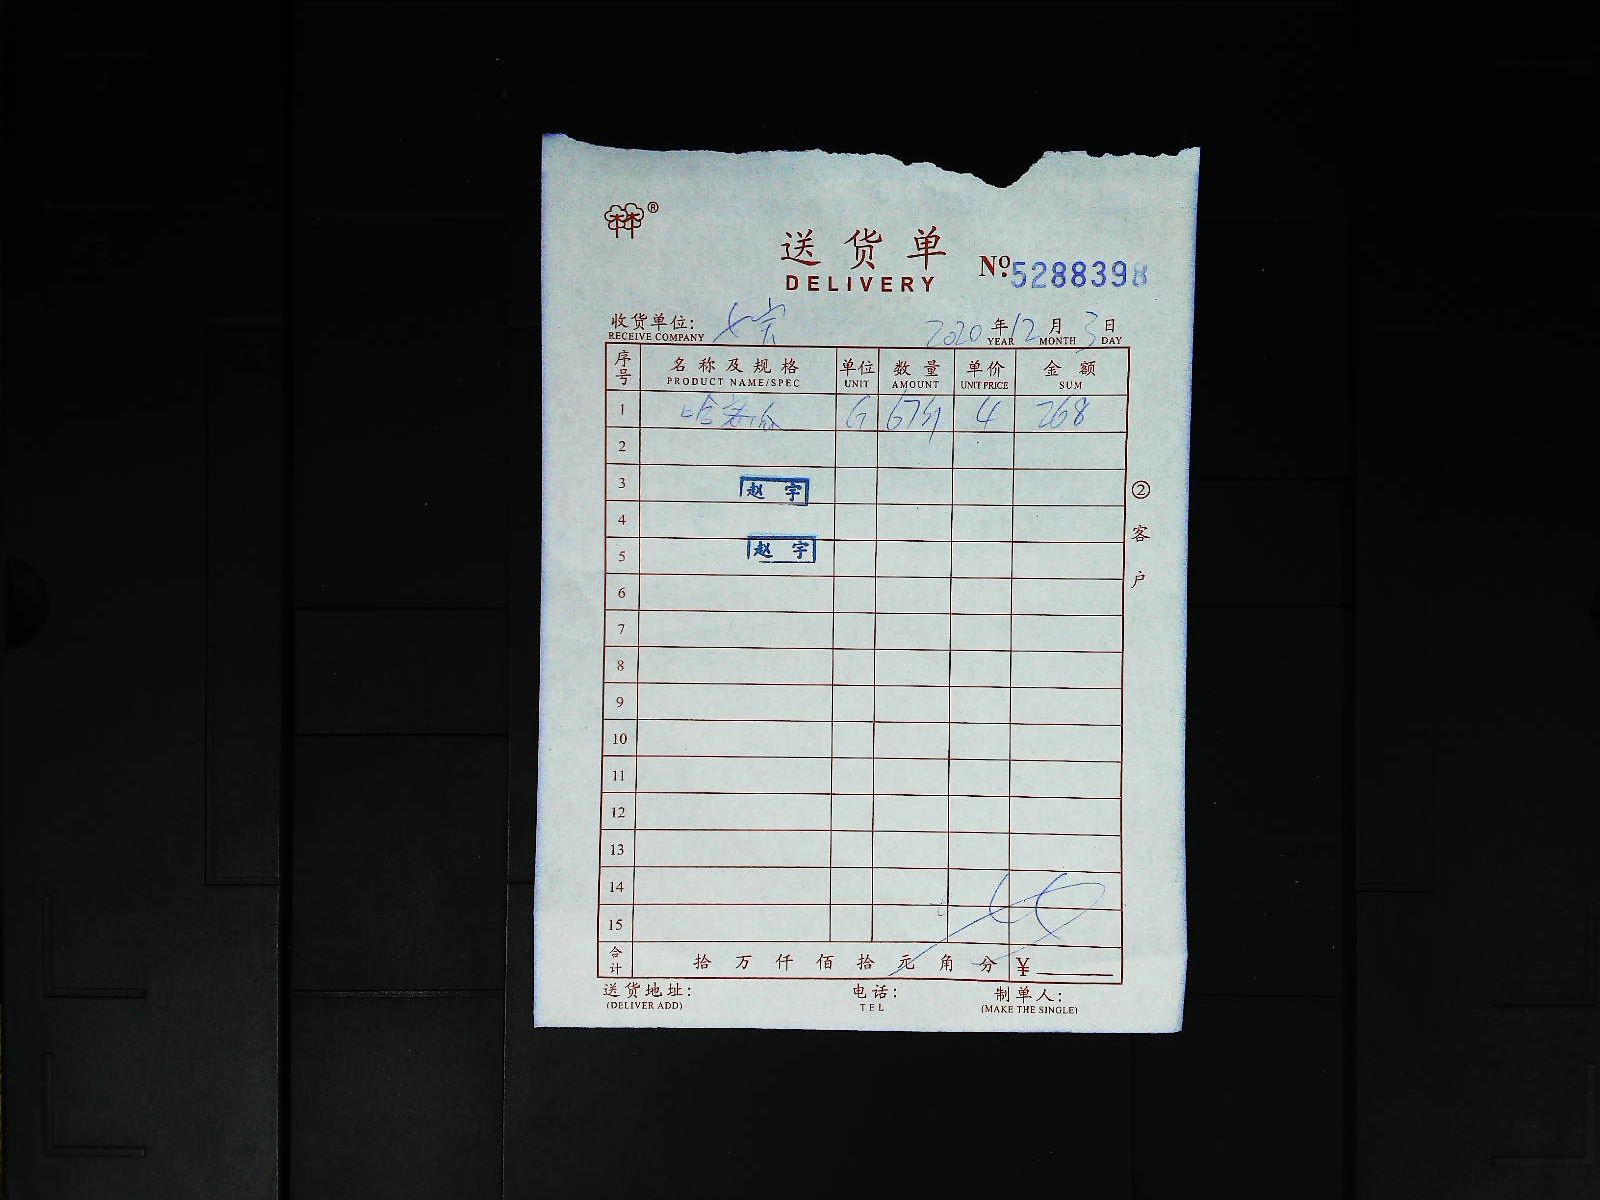 林®
送货单
DELIVERY
№.5288398
收货单位:
RECEIVE COMPANY
2020年12月3日
YEAR MONTH DAY
序号 名称及规格 单位 数量 单价 金额
PRODUCT NAME/SPEC UNIT AMOUNT UNIT PRICE SUM
1 哈密瓜 67 4 268
2
3 赵宇
4
5 赵宇
6
7
8
9
10
11
12
13
14
15
合计 拾 万 仟 佰 拾 元 角 分 ¥
②客户
送货地址: 电话: 制单人:
(DELIVER ADD) TEL (MAKE THE SINGLE)